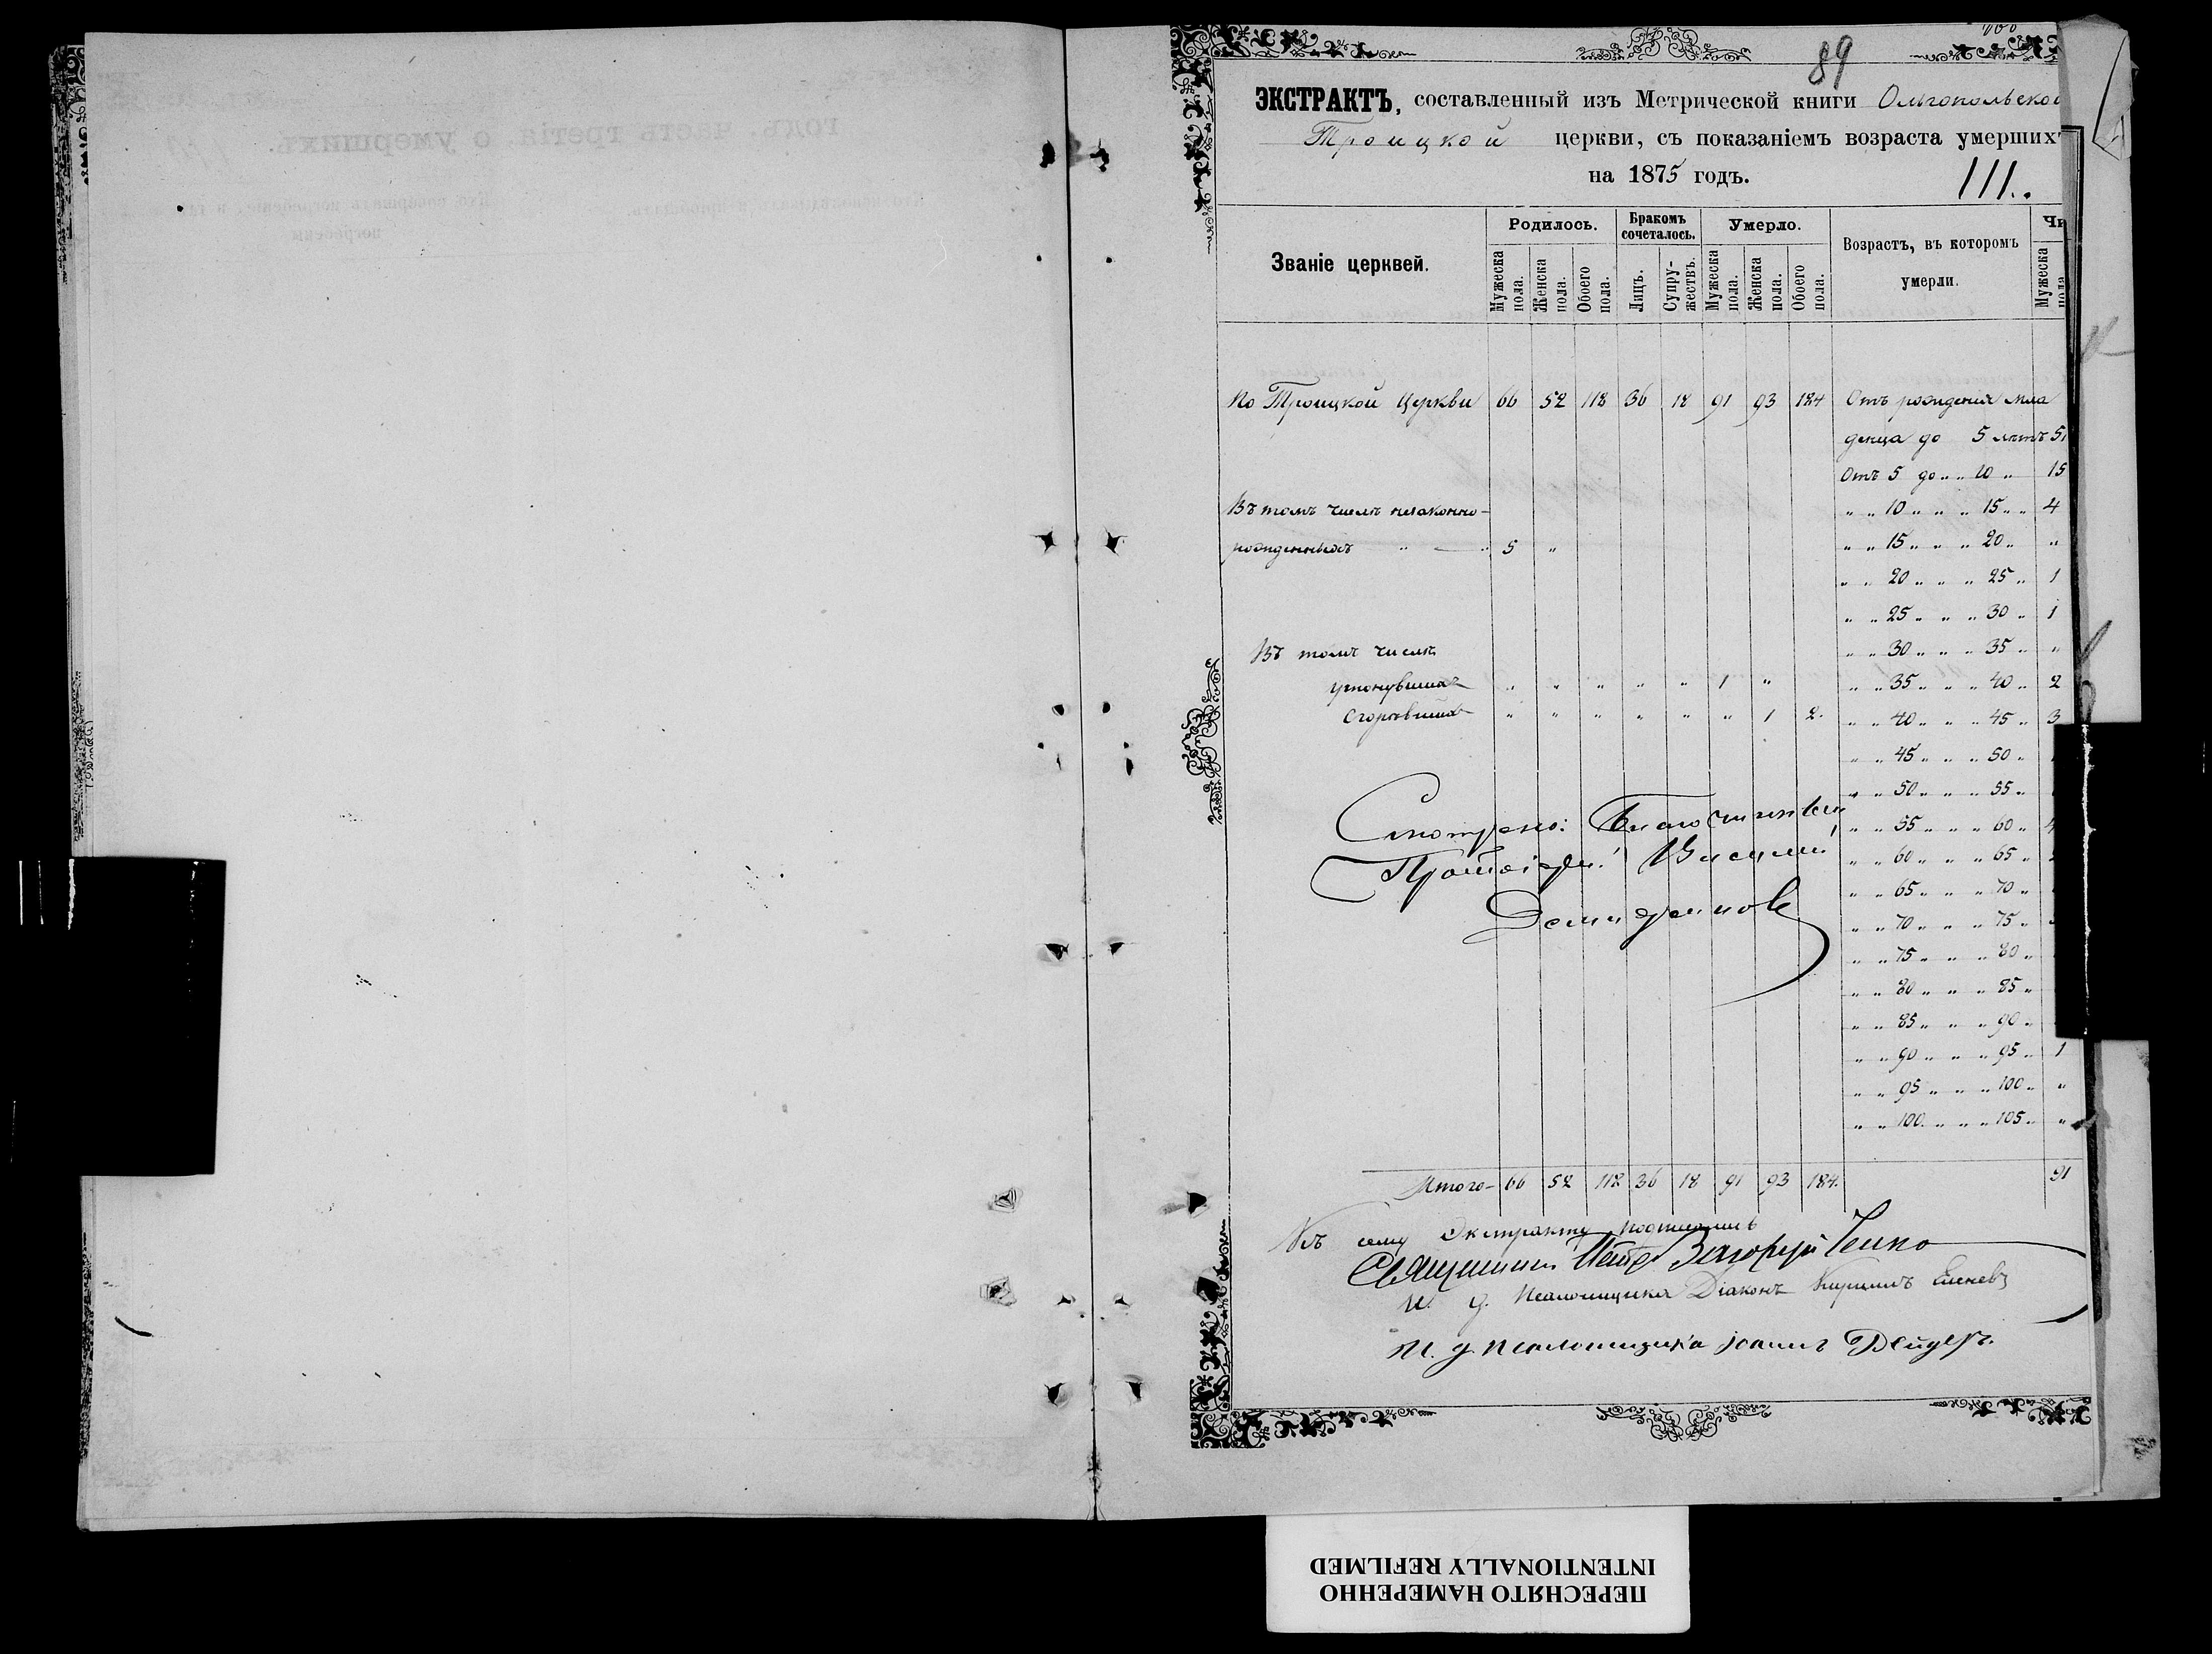 89
ЭКСТРАКТЪ, составленный изъ Метрической книги Ольгопольской
Троицкой церкви, съ показаніемъ возраста умершихъ
на 1875 годъ.
111..
Званіе церквей. Родилось. Бракомъ сочеталось. Умерло. Возрастъ, въ которомъ умерли.
Мужеска пола. Женска пола. Обоего пола. Лицъ. Супружествъ. Мужеска пола. Женска пола. Обоего пола. Мужеска пола
По Троицкой Церкви 66 52 118 36 18 91 93 184 Отъ рожденія мла
денца до 5 летъ
Отъ 5 до „ „ 10 „ 15
Въ томъ числѣ незаконно- „ „ 10 „ „ „ 15 „ „ 4
рожденныхъ „ — „ 5 „ „ „ 15 „ „ „ 20 „ „
„ „ 20 „ „ „ 25 „ 1
„ „ 25 „ „ „ 30 „ 1
Въ томъ числѣ „ „ 30 „ „ „ 35 „ „
утонувшихъ „ „ „ „ „ 1 „ „ „ 35 „ „ „ 40 „ 2
сгорѣвшихъ „ „ „ „ „ „ 1 2. „ „ 40 „ „ „ 45 „ 3
„ „ 45 „ „ „ 50 „
„ „ 50 „ „ „ 55 „
Смотрено: Благочинный „ „ 55 „ „ „ 60 „
Протоіерей Василій „ „ 60 „ „ „ 65 „
„ „ 65 „ „ „ 70 „
„ „ 70 „ „ „ 75 „
„ „ 75 „ „ „ 80 „
„ „ 80 „ „ „ 85 „
„ „ 85 „ „ „ 90 „
„ „ 90 „ „ „ 95 „ 1
„ „ 95 „ „ „ 100 „ „
„ „ 100. „ „ „ 105 „ „
Итого- 66 52 118 36 18 91 93 184. 91
Къ сему Экстракту подписались
Священникъ Петръ
И. д. Псаломщика Діаконъ Кириллъ
И. д. псаломщика Іоаннъ Дейдеръ.
ПЕРЕСНЯТО НАМЕРЕННО
INTENTIONALLY REFILMED